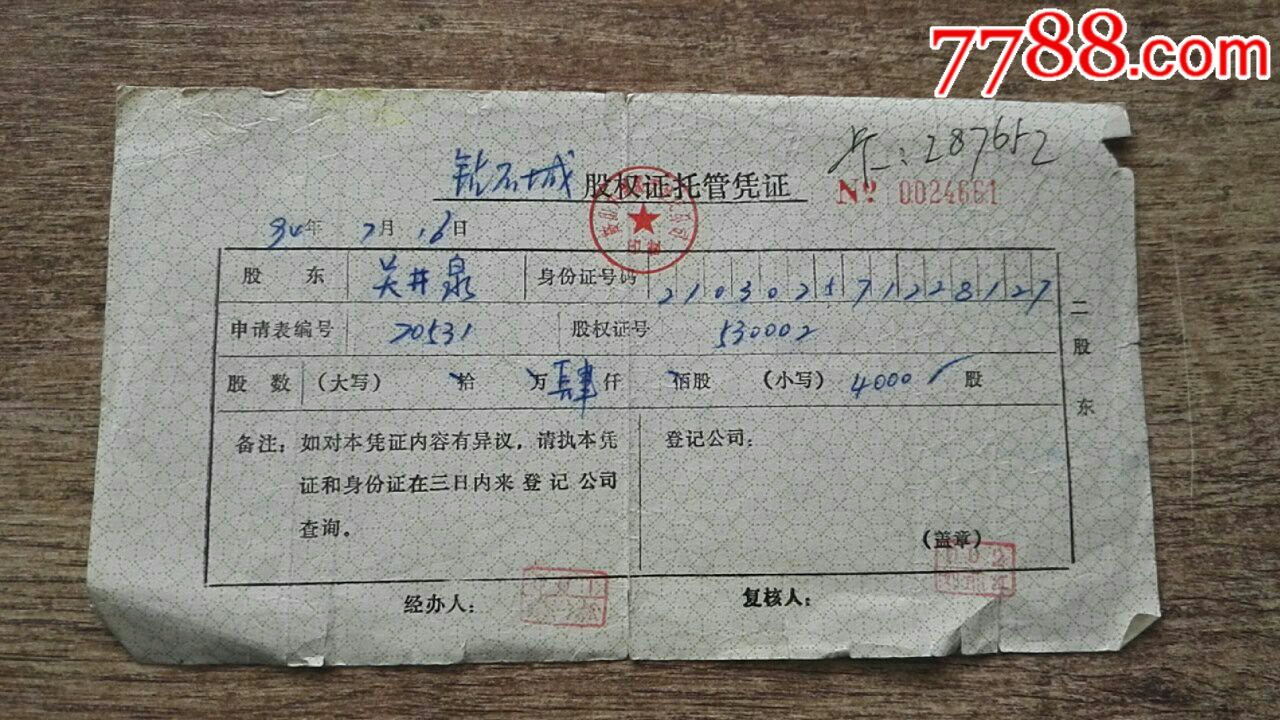 7788.com
卡:287652
钻石城 股权证托管凭证 Nº 0024661
94年 7月 16日
股东 关井泉 身份证号码 210302571228127
申请表编号 70531 股权证号 530002
股数 (大写) 拾 万 肆仟 佰股 (小写) 4000 股
备注:如对本凭证内容有异议,请执本凭
证和身份证在三日内来登记公司
查询。
登记公司:
(盖章)
经办人: 复核人:
二股东